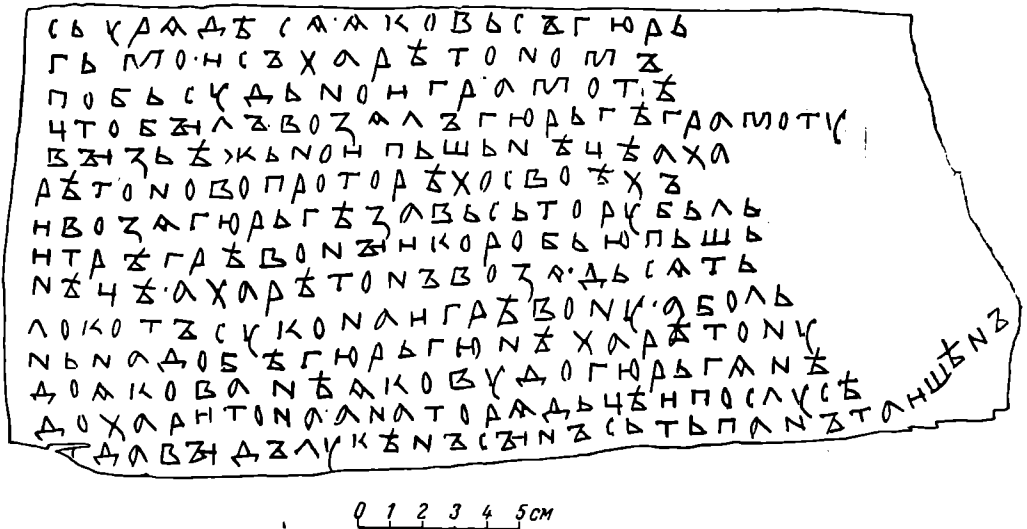 сьурѧдѣсѧ·ѧковьсъгюрь
гьмо·исъхарѣтономъ
побьсудьноиграмот·ѣ
цтобꙑлъ·возалъгюрьгѣграмоту
вꙑзьѣжьноипьшьнѣцѣаха
рѣтоновопроторѣхосвоѣхъ
ивозѧгюрьгѣзавьсьторубьль
итрѣгрѣвонꙑикоробьюпьшь
нѣцѣ·ахарѣтонъвозѧ·дьсѧть
локотъсуконаигрѣвону·аболь
ньнадобѣгюрьгюнѣхарѣтону
доѧкованѣѧковудогюрьгѧнѣ
дохаритона·анаторѧдьцѣипослусѣ
тдавꙑдълукѣнъсꙑнъсьтьпанътаишѣнъ
0 1 2 3 4 5 см